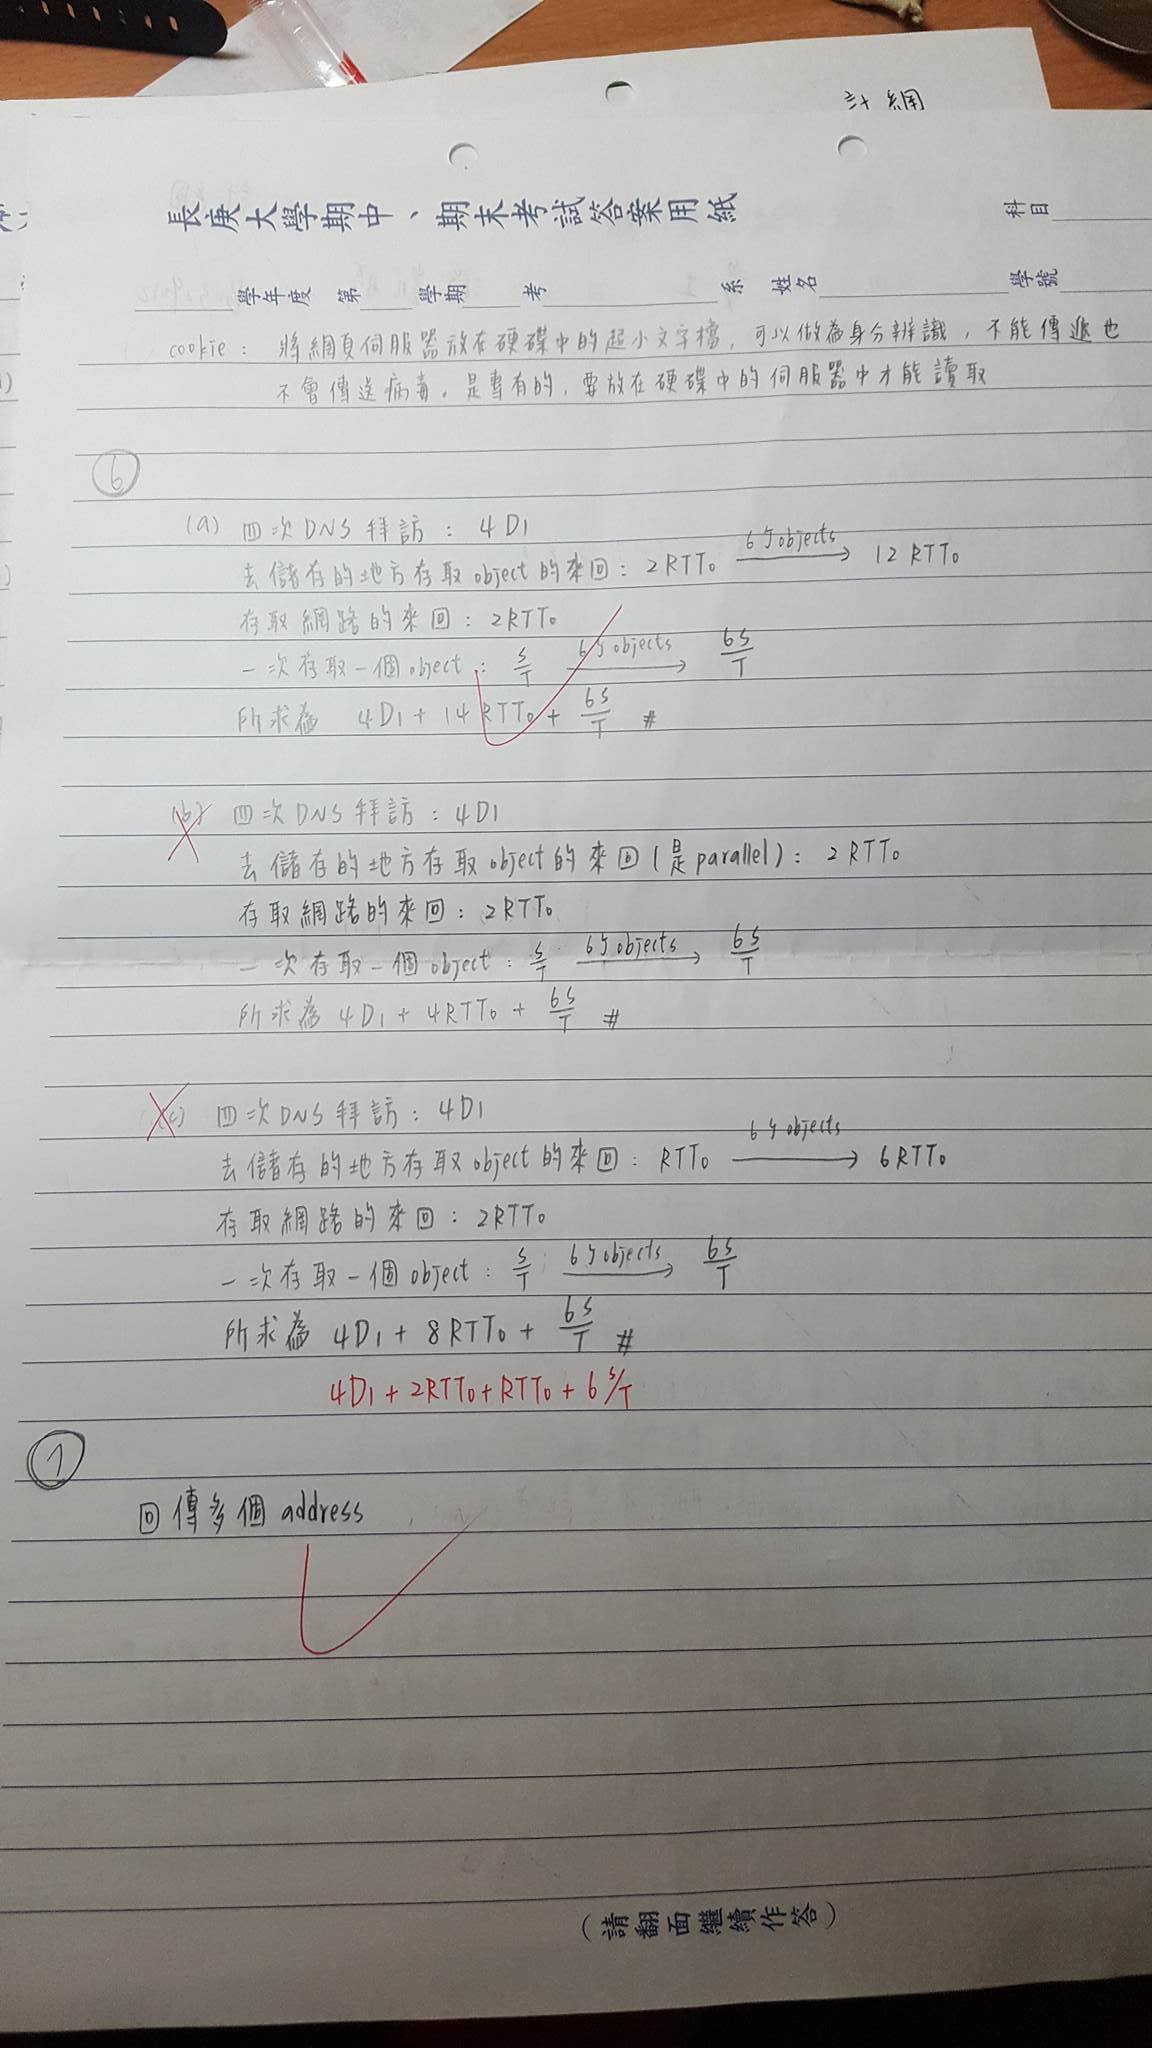 計網
長庚大學期中、期末考試答案用紙 科目
學年度 第 學期 考 系 姓名 學號
cookie: 將網頁伺服器放在硬碟中的超小文字檔，可以做為身分辨識，不能傳遞也
不會傳送病毒。是專有的，要放在硬碟中的伺服器中才能讀取
6
(a) 四次DNS拜訪: 4D1
去儲存的地方存取object的來回: 2RTT0 6個objects→ 12RTT0
存取網路的來回: 2RTT0
一次存取一個object: S/T 6個objects→ 6S/T
所求為 4D1 + 14RTT0 + 6S/T #
(b) 四次DNS拜訪: 4D1
去儲存的地方存取object的來回(是parallel): 2RTT0
存取網路的來回: 2RTT0
一次存取一個object: S/T 6個objects→ 6S/T
所求為 4D1 + 4RTT0 + 6S/T #
(c) 四次DNS拜訪: 4D1
去儲存的地方存取object的來回: RTT0 6個objects→ 6RTT0
存取網路的來回: 2RTT0
一次存取一個object: S/T 6個objects→ 6S/T
所求為 4D1 + 8RTT0 + 6S/T #
4D1 + 2RTT0 + RTT0 + 6 S/T
7
回傳多個address
(請翻面繼續作答)